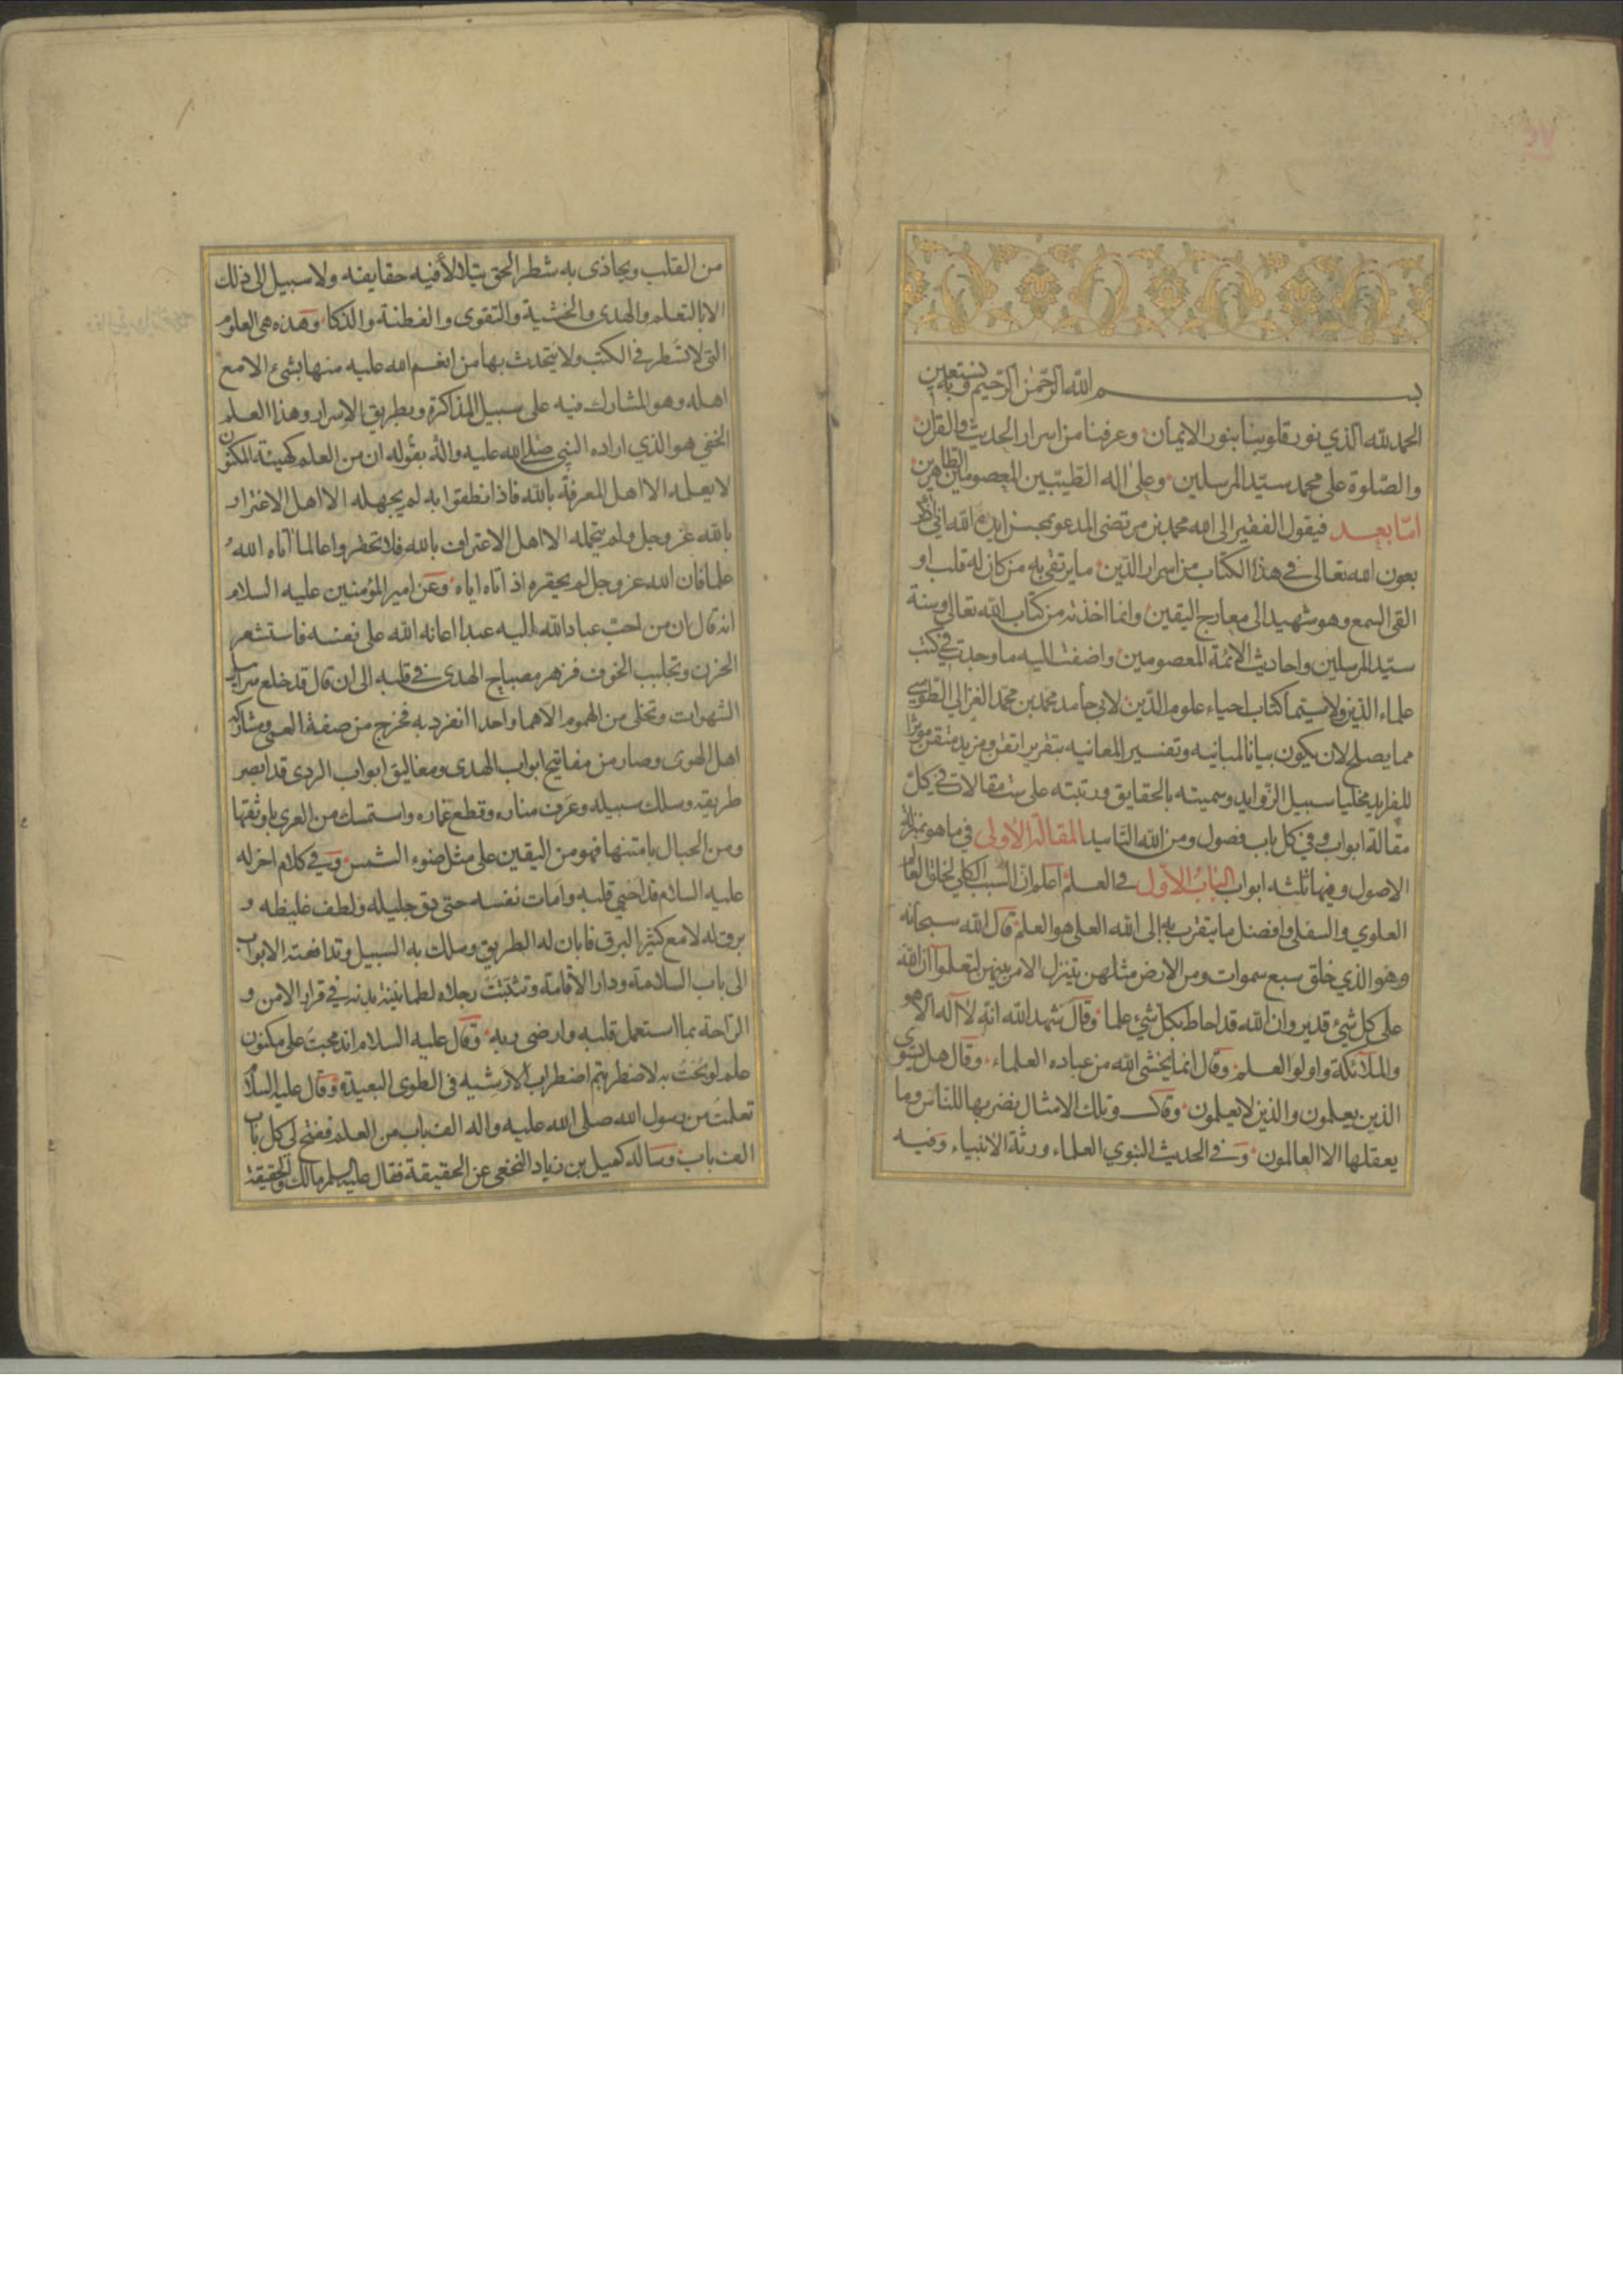 بسم الله الرحمن الرحيم وبه نستعين
الحمد لله الذي نور قلوبنا بنور الايمان وعرفنا من اسرار الحديث والقران
والصلوة على محمد سيد المرسلين وعلى اله الطيبين المعصومين الطاهرين
اما بعد فيقول الفقير الى الله محمد بن مرتضى المدعو بمحسن ايده الله اني اذكر
بعون الله تعالى في هذا الكتاب من اسرار الدين ما يرتقى به من كان له قلب او
القى السمع وهو شهيد الى معارج اليقين وانما اخذته من كتاب الله تعالى وسنة
سيد المرسلين واحاديث الائمة المعصومين واضفت اليه ما وجدت في كتب
علماء الدين ولا سيما كتاب احياء علوم الدين لابي حامد محمد بن محمد الغزالي الطوسي
مما يصلح لان يكون بيانا لمبانيه وتفسير المعانيه بتقرير اتقن ومزيد متقن موثرا
للفرايد مخليا سبيل الزوايد وسميته بالحقايق ورتبته على ست مقالات في كل
مقالة ابواب وفي كل باب فصول ومن الله التاييد المقالة الاولى في ما هو بمنزلة
الاصول وفيها ثلثه ابواب الباب الاول في العلم اعلموا ان السبب الكلي لخلق العالم
العلوي والسفلي وافضل ما يتقرب به الى الله العلي هو العلم قال الله سبحانه
وهو الذي خلق سبع سموات ومن الارض مثلهن يتنزل الامر بينهن لتعلموا ان الله
على كل شيء قدير وان الله قد احاط بكل شيء علما وقال شهد الله انه لا اله الا هو
والملائكة واولوا العلم وقال انما يخشى الله من عباده العلماء وقال هل يستوي
الذين يعلمون والذين لا يعلمون وقال وتلك الامثال نضربها للناس وما
يعقلها الا العالمون وفي الحديث النبوي العلماء ورثة الانبياء وفيه
من القلب ويحاذى به شطر الحق يتلالأ فيه حقايقه ولا سبيل الى ذلك
الا بالتعلم والهدى والخشية والتقوى والفطنة والذكا وهذه هي العلوم
التي لا تسطر في الكتب ولا يتحدث بها من انعم الله عليه منها بشيء الا مع
اهله وهو المشارك فيه على سبيل المذاكرة وبطريق الاسرار وهذا العلم
الخفي هو الذي اراده النبي صلى الله عليه واله بقوله ان من العلم كهيئة المكنون
لا يعلمه الا اهل المعرفة بالله فاذا نطقوا به لم يجهله الا اهل الاغترار
بالله عز وجل ولم يتحمله الا اهل الاعتراف بالله فلا تحقروا عالما اتاه الله
علما فان الله عز وجل لم يحقره اذ اتاه اياه وعن امير المؤمنين عليه السلام
انه قال ان من احب عباد الله اليه عبدا اعانه الله على نفسه فاستشعر
الحزن وتجلبب الخوف فزهر مصباح الهدى في قلبه الى ان قال قد خلع سرابيل
الشهوات وتخلى من الهموم الا هما واحدا انفرد به فخرج من صفة العمى ومشاركة
اهل الهوى وصار من مفاتيح ابواب الهدى ومغاليق ابواب الردى قد ابصر
طريقه وسلك سبيله وعرف مناره وقطع غماره واستمسك من العرى باوثقها
ومن الحبال بامتنها فهو من اليقين على مثل ضوء الشمس وفي كلام اخر له
عليه السلام قد احيى قلبه وامات نفسه حتى دق جليله ولطف غليظه و
برق له لامع كثير البرق فابان له الطريق وسلك به السبيل وتدافعته الابواب
الى باب السلامة ودار الاقامة وتثبتت رجلاه لطمانينة بدنه في قرار الامن و
الراحة بما استعمل قلبه وارضى ربه وقال عليه السلام اندمجت على مكنون
علم لو بحت به لاضطربتم اضطراب الارشيه في الطوى البعيدة وقال عليه السلام
تعلمت من رسول الله صلى الله عليه واله الف باب من العلم ففتح لي كل باب
الف باب وساله كميل بن زياد النخعي عن الحقيقة فقال عليه السلم مالك والحقيقة